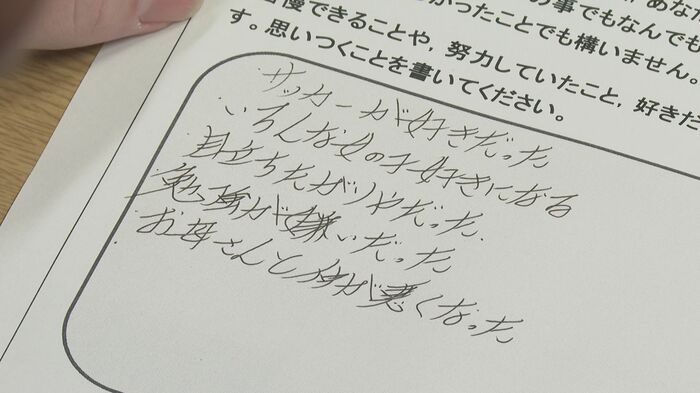 、あなた
の事でもなんでも
かったことでも構いません。
慢できることや，努力していたこと，好きだ
す。思いつくことを書いてください。
サッカーが好きだった
いろんな女の子好きになる
目立ちたがりやだった．
勉強が嫌いだった
お母さんと仲が悪くなった